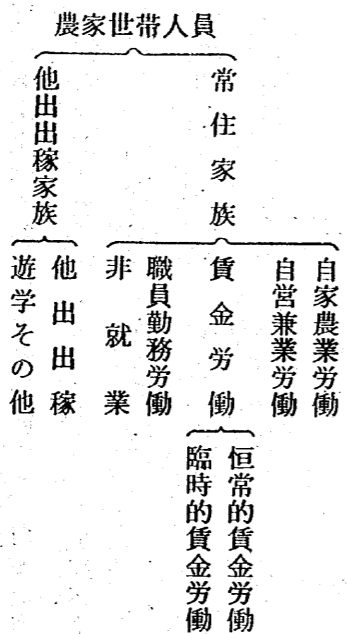 農家世帯人員
常住家族
自家農業労働
自営兼業労働
賃金労働
恒常的賃金労働
臨時的賃金労働
職員勤務労働
非就業
他出出稼家族
他出出稼
遊学その他